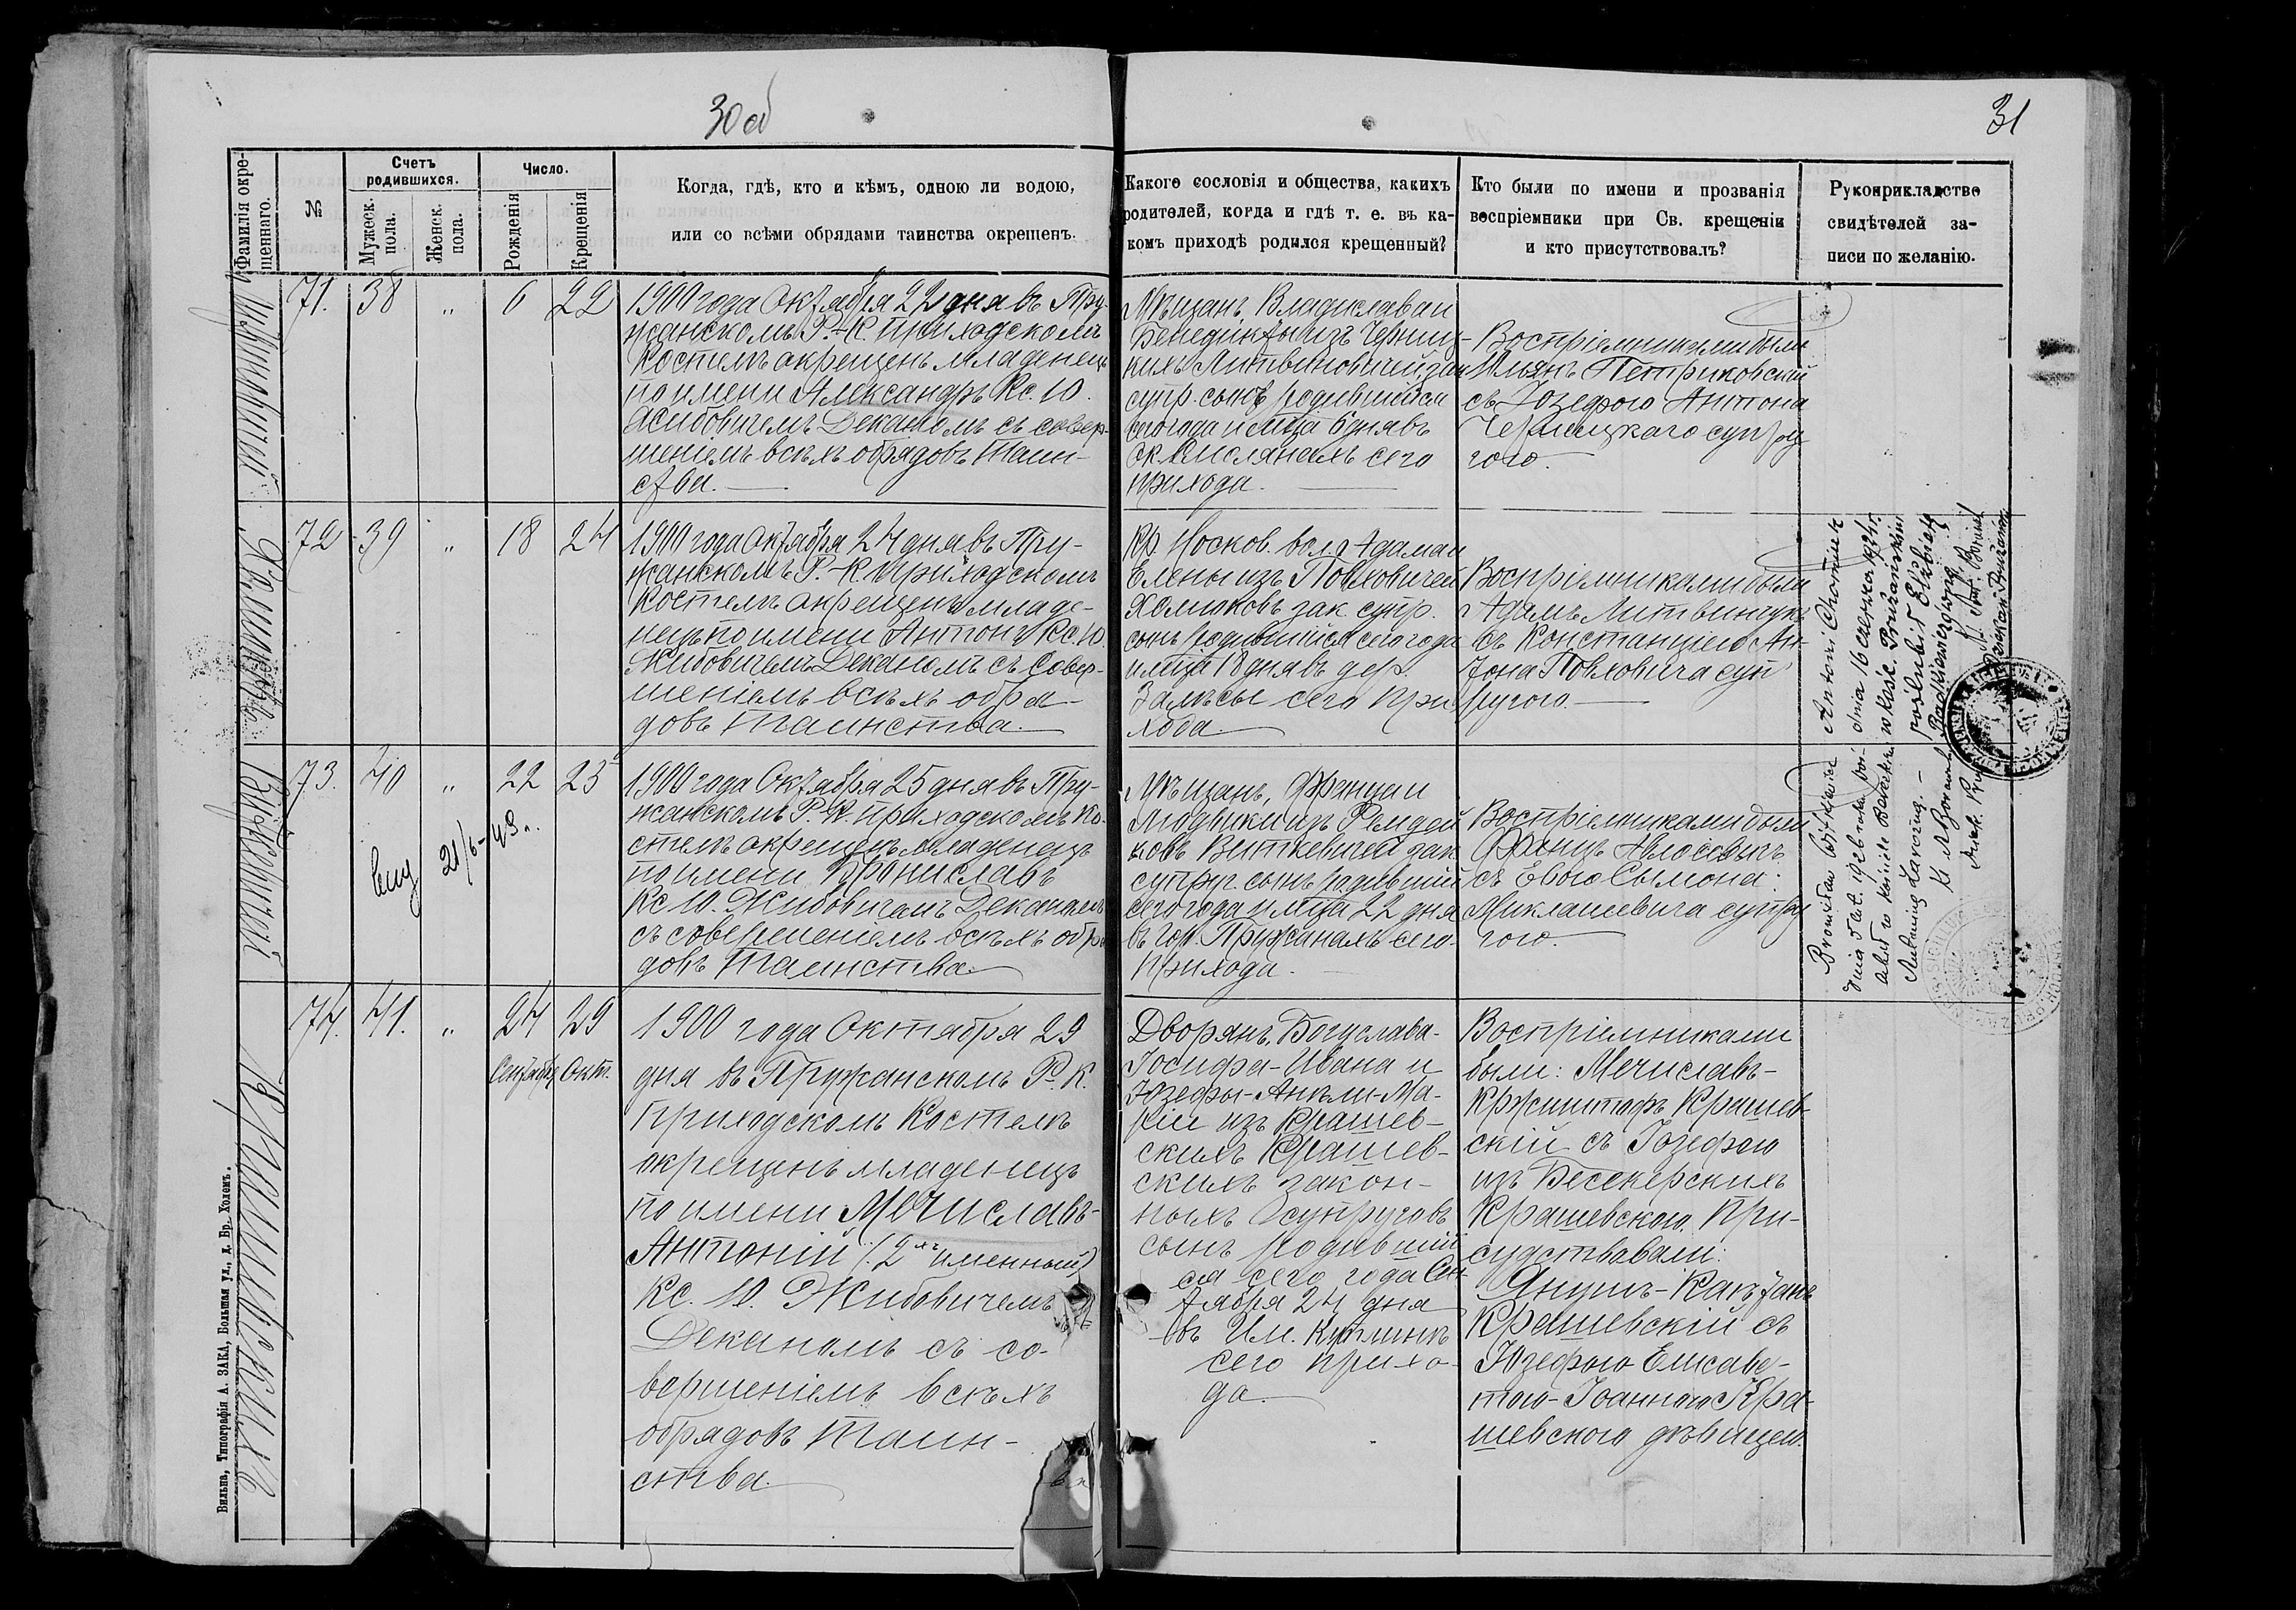 30 об
31
Фамилія окре-
щеннаго.
№
Счетъ
родившихся.
Мужеск.
пола.
Женск.
пола.
Число.
Рожденія
Крещенія
Когда, гдѣ, кто и кѣмъ, одною ли водою,
или со всѣми обрядами таинства окрещенъ.
Какого сословія и общества, какихъ
родителей, когда и гдѣ т. е. въ ка-
комъ приходѣ родился крещенный?
Кто были по имени и прозванія
воспріемники при Св. крещеніи
и кто присутствовалъ?
Рукоприкладство
свидѣтелей за-
писи по желанію.
71. 38 „ 6 22
1900 года Октября 22 дня въ Пру-
жанскомъ Р.-К. приходскомъ
костелѣ окрещенъ младенецъ
по имени Александръ Кс. Ю.
Жибовичемъ Деканомъ съ совер-
шеніемъ всѣхъ обрядовъ Таин-
ства.
Мѣщанъ, Владислава и
Бенедикты изъ Черниц-
кихъ Литвиновичей, зак
супр. сынъ, родившійся
сего года и мѣца 6 дня въ
ок. Смолянахъ сего
прихода.
Воспріемниками были
Юльянъ Петриковскій
съ Юзефою Антона
Черницкаго супру
гою.
Хомиковъ
72 39 „ 18 24
1900 года Октября 24 дня въ Пру-
жанскомъ Р.-К. приходскомъ
костелѣ окрещенъ младе-
нецъ по имени Антонъ Кс. Ю.
Жибовичемъ Деканомъ съ совер-
шеніемъ всѣхъ обря-
довъ Таинства.
Кр. Носков. вол. Адама и
Елены изъ Повховичей
Хомиковъ зак. супр.
сынъ, родившійся сего года
и мѣца 18 дня въ дер.
Залѣсы сего при
хода.
Воспріемниками были
Адамъ Литвинчукъ
съ Констанціею Ан-
тона Повховича суп
ругою.
Виткевичей
73. 40 „ 22 25
вид 21/6-43 г.
1900 года Октября 25 дня въ Пру-
жанскомъ Р.-К. приходскомъ ко-
стелѣ окрещенъ младенецъ
по имени Брониславъ
Кс Ю. Жибовичемъ Деканомъ
съ совершеніемъ всѣхъ обря
довъ Таинства.
Мѣщанъ, Франца и
Людвики изъ
Виткевичей зак
супруг. сынъ, родивший
сего года и мѣца 22 дня
въ гор. Пружанахъ сего
прихода.
Воспріемниками были
Францъ
съ Евою Сымона
Миклашевича супру
гою.
Bronisław Witkiewicz
dnia 5 lut. 1926 roku
Antoni Chomik
dnia 16 czerwca
w kośc. Prużańskim
poślubił Elżbietę
Ks.
Крашевскихъ
74. 41. „ 24 29
Сентября Окт.
1900 года Октября 29
дня въ Пружанскомъ Р.-К.
приходскомъ костелѣ
окрещенъ младенецъ
по имени Мечиславъ-
Антоній (:2хъ именный)
Кс. Ю. Жибовичемъ
Деканомъ съ со-
вершеніемъ всѣхъ
обрядовъ Таин-
ства.
Дворянъ, Богуслава-
Іосифа-Ивана и
Юзефы-Анели-Ма-
ріи изъ Крашев-
скихъ Крашев-
скихъ закон-
ныхъ супруговъ
сынъ, родивший
ся сего года Сен-
тября 24 дня
въ Им. Куплинѣ
сего прихо-
да.
Воспріемниками
были: Мечиславъ-
Кржиштофъ Крашев-
скій съ Іозефою
изъ Бесекерскихъ
Крашевскою. При-
судствовали:
Янушъ-Каэтанъ
Крашевскій съ
Юзефою-Елисаве-
тою-Іоанною Кра-
шевскою дѣвицею.
Вильна, Типографія А. ЗАКА, Большая ул., д. Бр. Холемъ.